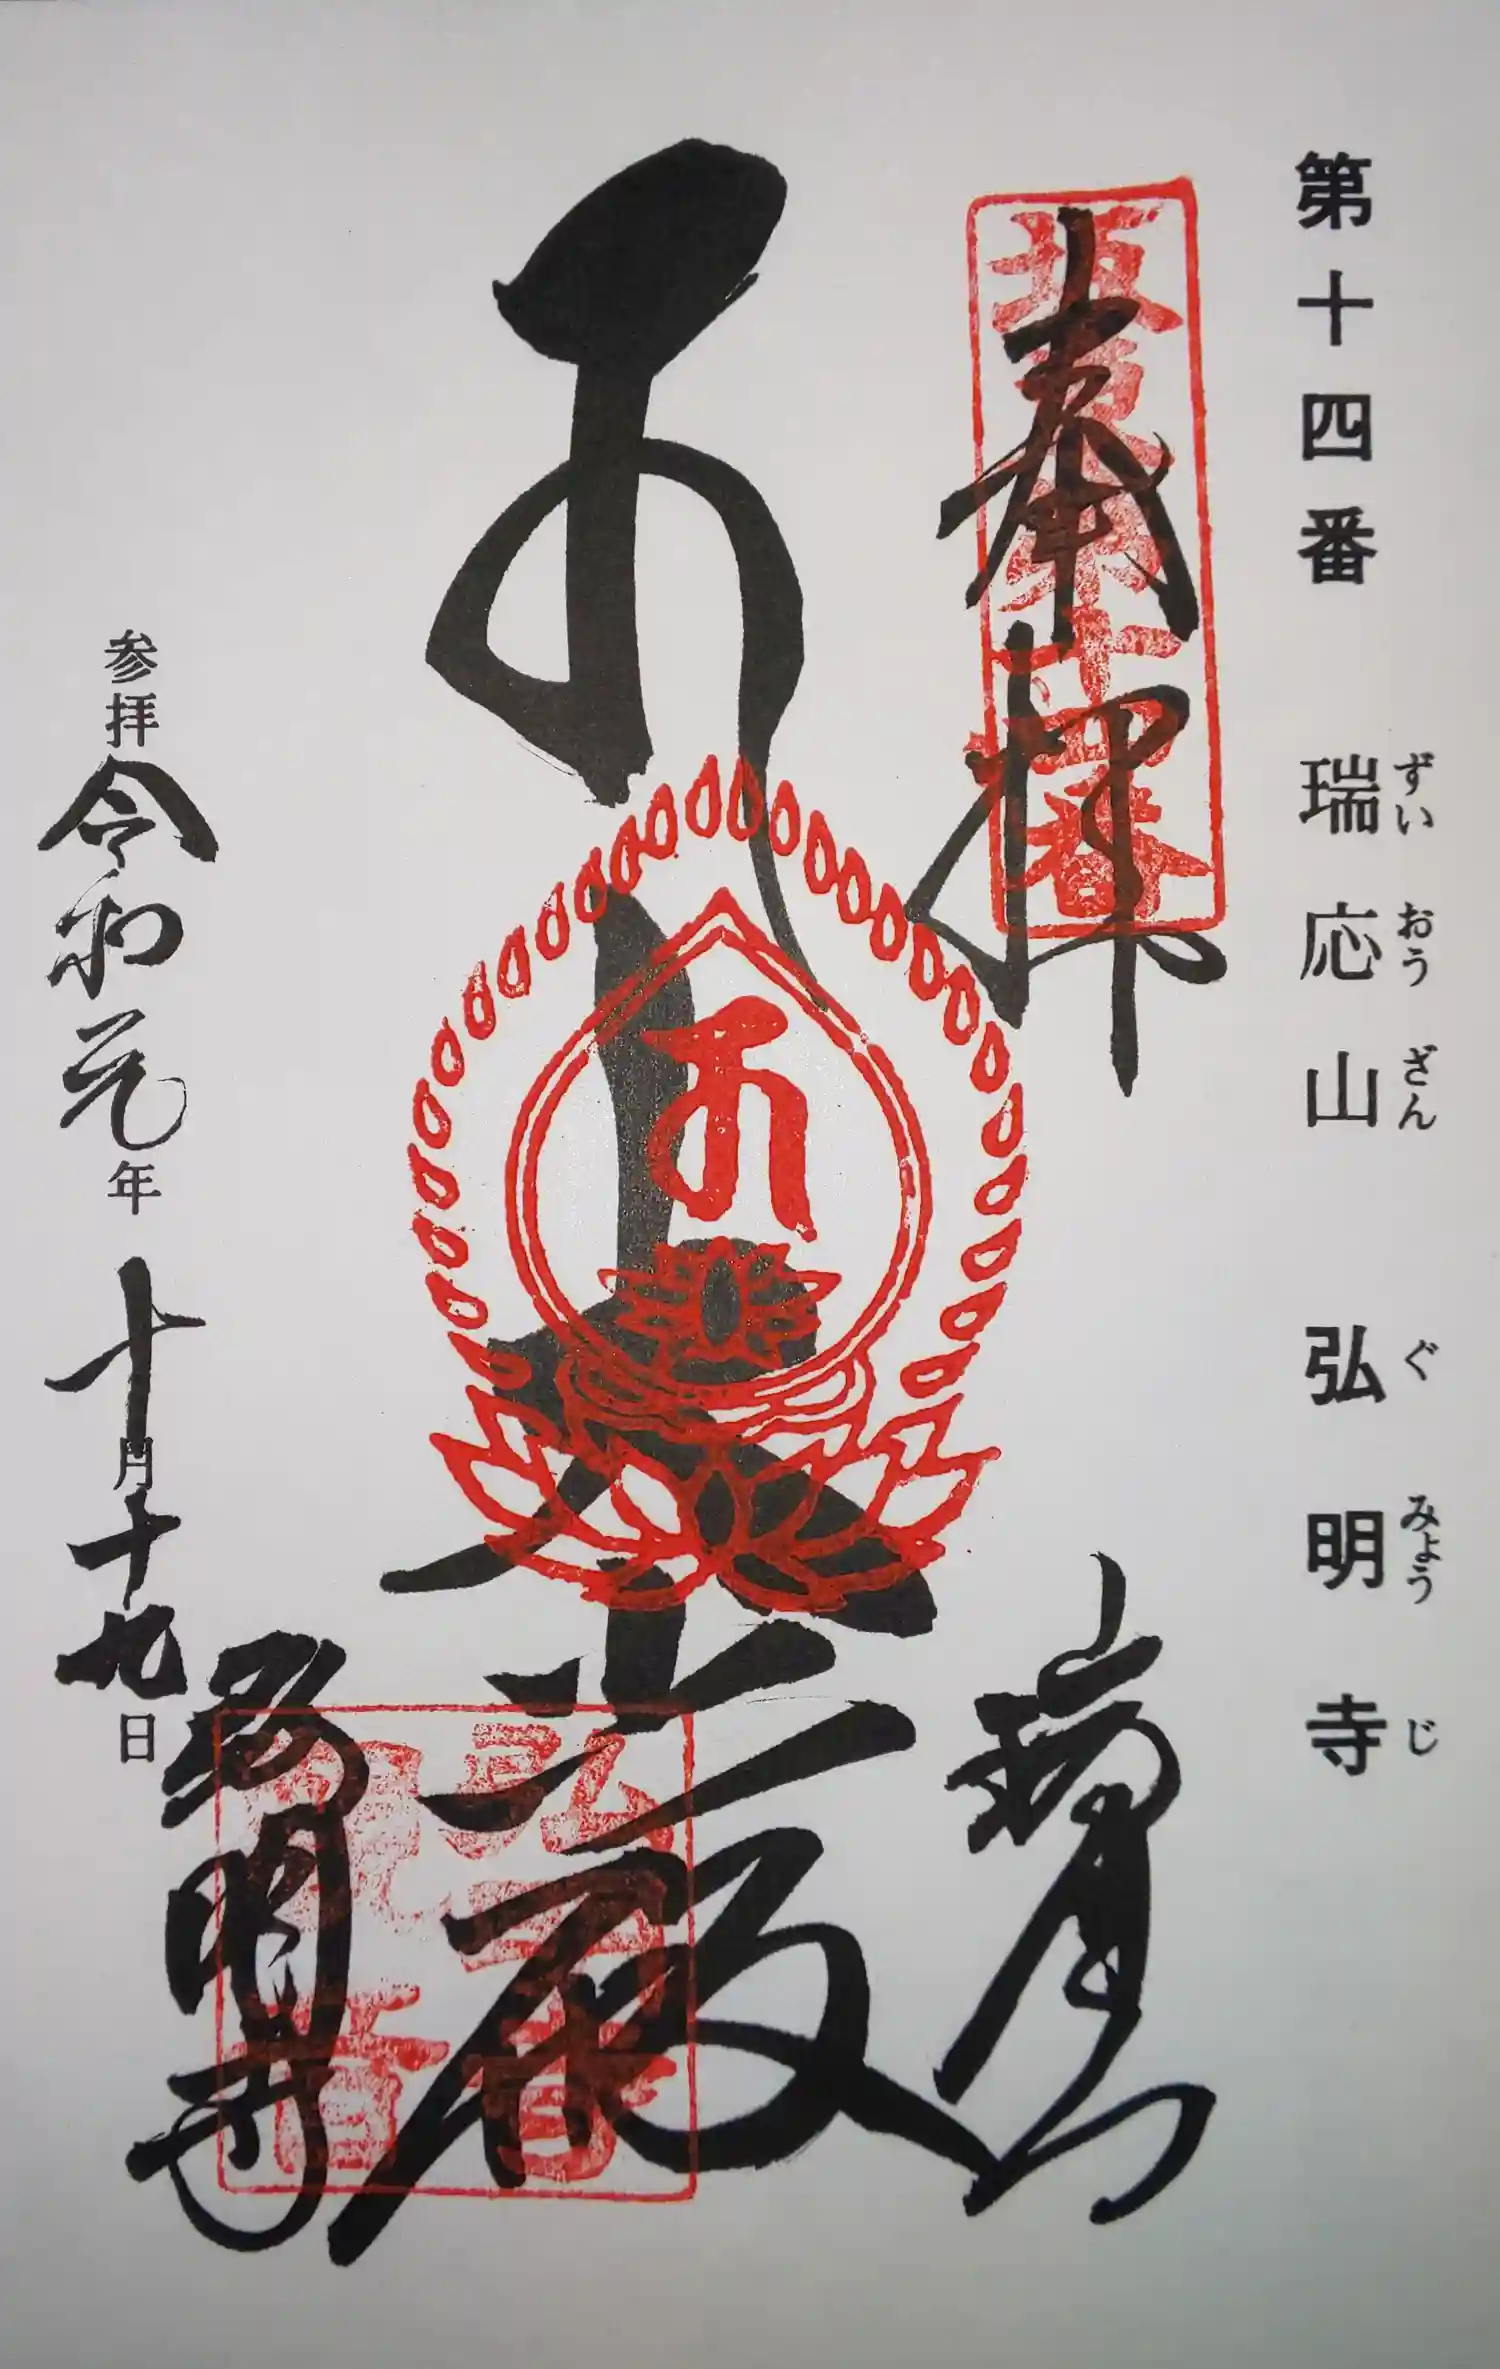 第十四番 瑞応山 弘明寺
ずいおうざん ぐみょうじ
奉拝
坂東第十四番
瑞應山
大悲殿
弘明寺
参拝 令和元年十月十九日